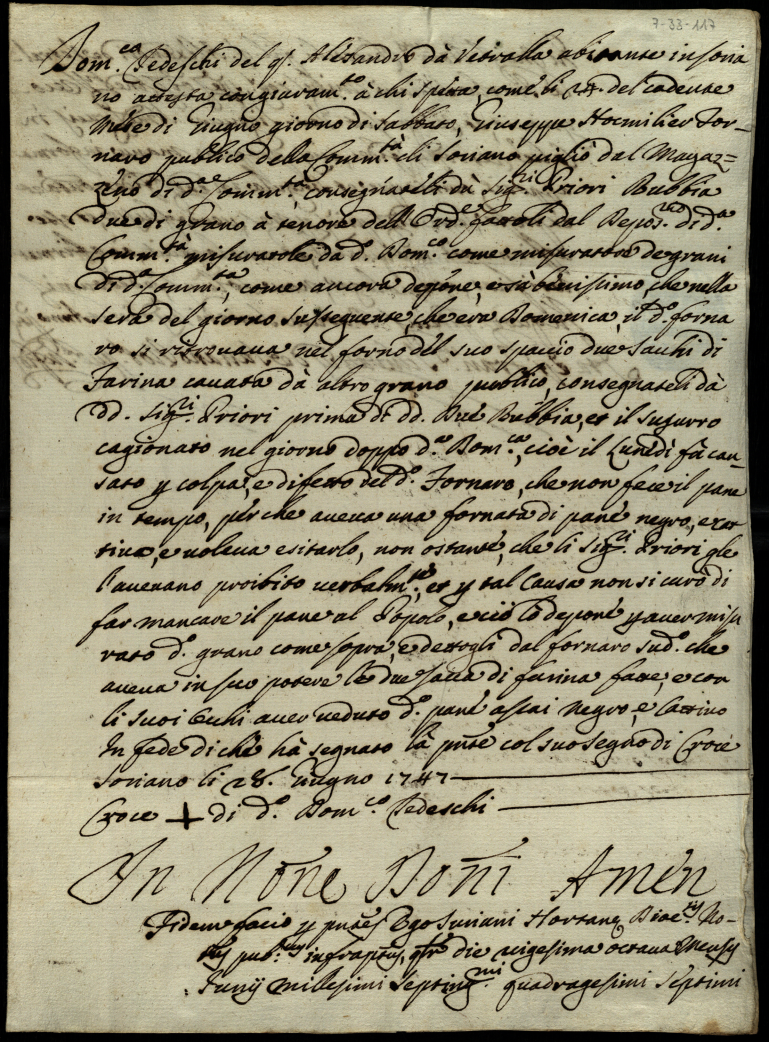 7-33-117
Dom.co Tedeschi del q. Alesandro dà Vetralla abitante in Soria
no attesta con giuram.to à chi spetta, come li 24. del cadente
Mese di Giugno giorno di Sabbato, Giuseppe For-
naro publico della Comm.tà di Soriano pigliò dal Magaz=
zeno di d.a Comm.tà, consegnateli dà Sig.ri Priori Rubbia
due di grano à tenore dell'Ord.e fattoli dal di d.a
Comm.tà misuratole da d.o Dom.co come misuratore de grani
di d.a Comm.tà, come ancora depone, e sà benissimo, che nella
sera del giorno susseguente, che era Domenica, il d.o forna
ro si ritrovava nel forno del suo spaccio due Sacchi di
Farina cavata dà altro grano publico, consegnateli dà
dd. Sig.ri Priori prima di dd. Due Rubbia, et il susurro
cagionato nel giorno doppo d.a Dom.ca, cioè il Lunedì fù cau-
sato p colpa, e difetto del d.o Fornaro, che non fece il pane
in tempo, perche aveva una fornata di pane negro, e cat
tivo, e voleva esitarlo, non ostante, che li Sig.ri Priori gle
l'avevano proibito verbalm.te, et p tal Causa non si curò di
far mancare il pane al Popolo, e ciò lo depone p aver misu
rato d.o grano come sopra, e dettogli dal fornaro sud.o che
aveva in suo potere le due sacca di farina fatte, e con
li suoi Occhi aver veduto d.o pane assai negro, e Cattivo
In fede di che hà segnato la pnte col suo segno di Croce
Soriano li 28. Giugno 1747
Croce + di d.o Dom.co Tedeschi
In None Doni Amen
Fidem facio p pntes Ego Suriani Hortane Dioec.s No-
rius pub.cus infraptus, qtr die vigesima octava Mensis
Junij millesimi Septing.mi quadragesimi Septimi